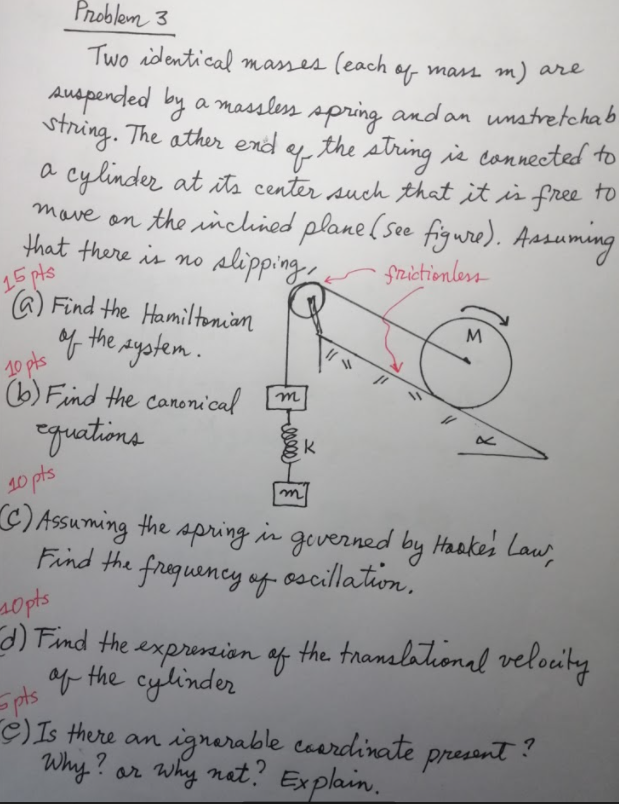 Problem 3
Two identical masses (each of mass m) are
suspended by a massless spring and an unstretchab
string. The other end of the string is connected to
a cylinder at its center such that it is free to
move on the inclined plane (see figure). Assuming
that there is no slipping,
frictionless
15 pts
(a) Find the Hamiltonian
of the system.
10 pts
(b) Find the canonical
equations
M
m
k
m
α
10 pts
(c) Assuming the spring is governed by Hooke's Law,
Find the frequency of oscillation.
10 pts
(d) Find the expression of the translational velocity
of the cylinder
5 pts
(e) Is there an ignorable coordinate present?
Why? or why not? Explain.